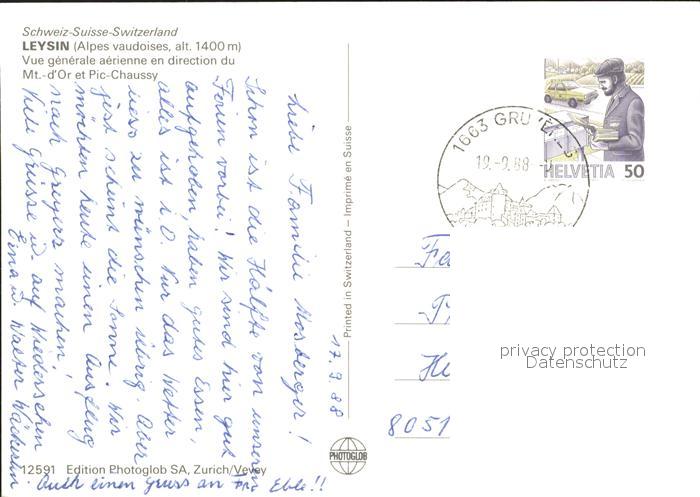 Schweiz-Suisse-Switzerland
LEYSIN (Alpes vaudoises, alt. 1400 m)
Vue générale aérienne en direction du
Mt.-d'Or et Pic-Chaussy
Liebe Familie Mosberger!
Schon ist die Hälfte von unseren
Ferien vorbei! Wir sind hier gut
aufgehoben, haben gutes Essen,
alles ist i.O. Nur das Wetter
liess zu wünschen übrig. Aber
jetzt scheint die Sonne. Wir
möchten heute einen Ausflug
nach Greyerz machen!
Viele Grüsse u. auf Wiedersehen
Erna u. Walter
Auch einen Gruss an Frl. Eble!!
17.9.88
Printed in Switzerland – Imprimé en Suisse
12591 Edition Photoglob SA, Zurich/Vevey
PHOTOGLOB
1663 GRUYÈRES
19.-9.88
HELVETIA 50
8051
privacy protection
Datenschutz